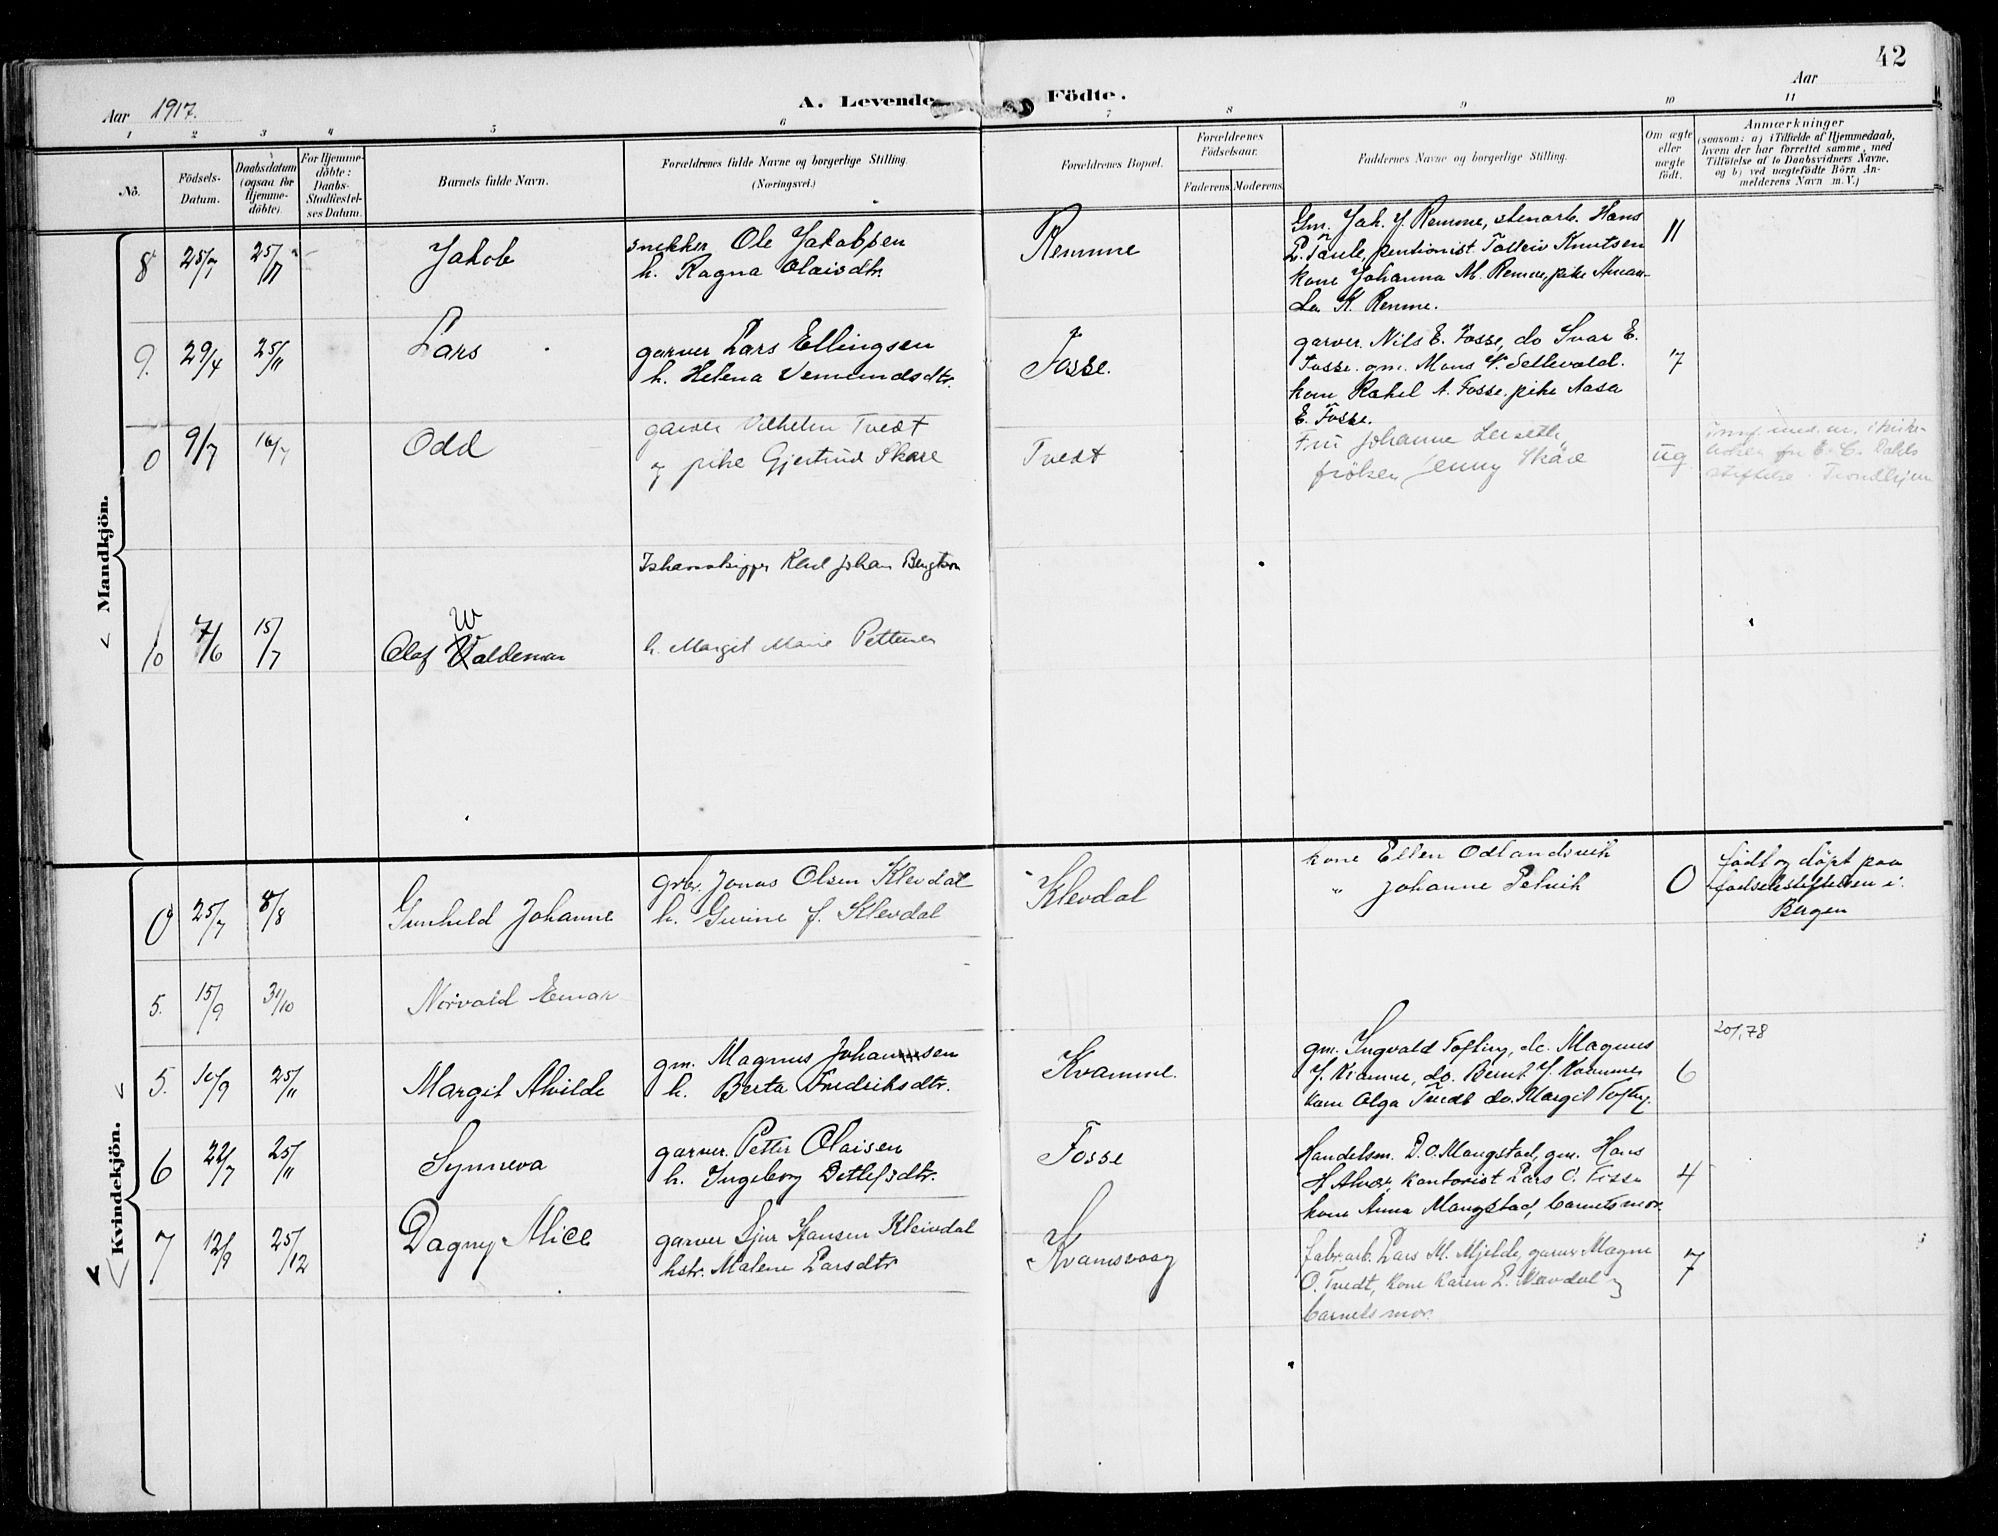 42
Aar 1917.
A. Levende Födte.
Aar
1 2 3 4 5 6 7 8 9 10 11
No.
Födsels-Datum.
Daabsdatum (ogsaa for Hjemmedöbte).
For Hjemmedöbte: Daabs-Stadfæstelses Datum.
Barnets fulde Navn.
Forældrenes fulde Navne og borgerlige Stilling.
(Næringsvei.)
Forældrenes Bopæl.
Forældrenes Födselsaar.
Faderens. Moderens.
Faddernes Navne og borgerlige Stilling.
Om ægte eller uægte födt.
Anmærkninger
(saasom: a) i Tilfælde af Hjemmedaab, hvem der har forrettet samme, med Tilföielse af to Daabsvidners Navne, og b) ved uægtefödte Börn Anmelderens Navn m. V.)
Mandkjön.
8 25/7 25/11 Jakob
snekker Ole Jakobsen
h. Ragna Olaisdtr.
Remme
Gm. Jak. J. Remme, stenarb. Hans
pentionist Tolleiv Knutsen
kone Johanna M. Remme, pike Aman-
da K. Remme.
11
9. 29/4 25/11 Lars
garver Lars Ellingsen
h. Helena Vemundsdtr.
Fosse.
garver. Nils E. Fosse, do Ivar E.
Fosse. gm. Mons V. Sellevold.
kone Rakel A. Fosse. pike Aasa
E. Fosse.
7
0 9/7 16/7 Odd
garver Vilhelm Tvedt
og pike Gjertrud Skare
Tvedt
Fru Johanne
frøken Jenny Skare
ug
E. C. Dahls
stiftelse Trondhjem
10 7/6 15/7 Olaf Waldemar
Johan
h. Margit Marie
Kvindekjön.
0 25/7 8/8 Gunhild Johanne
grbr. Jonas Olsen Klevdal
h. Gurine f. Klevdal
Klevdal
kone Ellen Odlandsvik
" Johanne Pelvik
0
født og døpt paa
fødselsstiftelsen i
Bergen
5. 15/9 31/10 Norvald Einar
5. 10/9 25/11 Margit Alvilde
gm. Magnus Johannesen
h. Berta Fredriksdtr.
Kvamme.
gm. Ingvald Tofting, do. Magnus
J. Kvamme, do. Bernt J. Kvamme
kone Olga Tvedt do. Margit Tofting.
6
201,78
6 22/7 25/11 Synneva
garver. Petter Olaisen
h. Ingeborg Detlefsdtr.
Fosse
Handelsm. D. O. Mangstad, gm. Hans
H Alver, kontorist Lars O. Fosse
kone Anna Mangstad, barnets mor.
4
7 12/9 25/12 Dagny Alice
garver Sjur Hansen Kleivdal
hstr. Malene Larsdtr
Kvamsvaag
fabr.arb. Lars M. Mjelde, garver Magne
O. Tvedt, kone Karen L. Klevdal og
barnets mor.
7